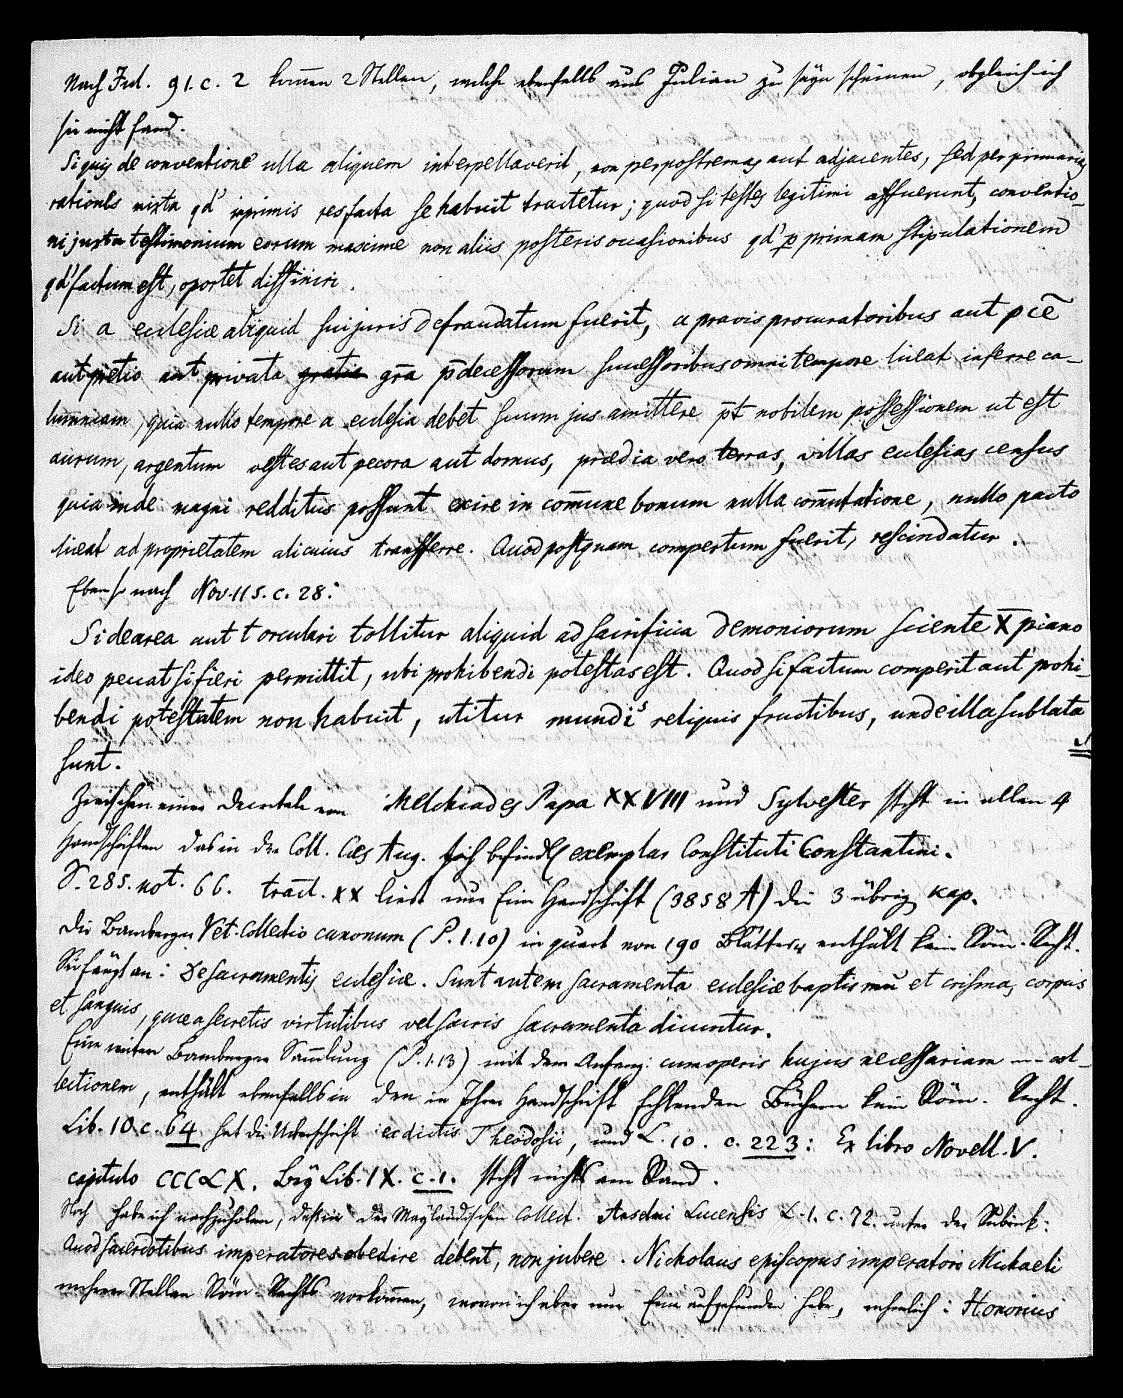 Nach Jul. 91. c. 2 kom̄en 2 Stellen, welche ebenfalls aus Julian zu seyn scheinen, obgleich ich
sie nicht fand.
Si quis de conventione ulla aliquem interpellaverit, non per postremas aut adjacentes, sed per primarias
rationes mixta qd' inprimis res facta se habuit tractetur; quod si testes legitimi affuerunt, conventio-
ni juxta testimonium eorum maxime non aliis posteris occasionibus qd' p primam stipulationem
qd' factum est, oportet diffiniri.
Si a ecclesiæ aliquid sui juris defraudatum fuerit, a pravis procuratoribus aut p cē
aut pretio aut privata gratia gr̄a p̄decessorum successoribus omni tempore liceat inferre ca-
lumniam, quia nullo tempore a ecclesia debet suum jus amittere p̄t nobilem possessionem ut est
aurum, argentum vestes aut pecora aut domus, prædia vero terras, villas ecclesias census
quia inde magni redditus possunt exire in com̄une bonum nulla com̄utatione, nullo pacto
liceat ad proprietatem alicuius transferre. Quod postquam compertum fuerit, rescindatur.
Ebenso nach Nov. 115. c. 28:
Si de area aut torculari tollitur aliquid ad sacrificia demoniorum sciente X̄piano
ideo peccat si fieri permittit, ubi prohibendi potestas est. Quod si factum comperit aut prohi-
bendi potestatem non habuit, utitur mundis reliquis fructibus, unde illa sublata
sunt.
Zwischen einer Decretale von Melchiades Papa XXVIII und Sylvester steht in allen 4
Handschriften das in der Coll. Caes Aug. sich befindl exemplar Constituti Constantini.
S. 285. not. 66. tract. XX liest nur Eine Handschrift (3858 A) die 3 übrig Kap.
Die Bamberger Vet. Collectio canonum (P. 1. 10) in quart von 190 Blättern enthält kein Röm. Recht.
Sie fängt an: De sacramentis ecclesiæ. Sunt autem sacramenta ecclesiæ baptismū et crisma, corpus
et sanguis, quæ a secretis virtutibus vel sacris sacramenta dicuntur.
Eine weitere Bamberger Sam̄lung (P. 1. 13) mit dem Anfang: cum operis hujus necessariam --- col-
lectionem, enthält ebenfalls in den in Ihrer Handschrift fehlenden Büchern kein Röm. Recht.
Lib. 10 c. 64 hat die Ueberschrift ex dictis Theodosii, und L. 10. c. 223: Ex libro Novell. V.
capitulo CCCLX. Bey Lib. IX. c. 1. steht nichts am Rand.
Noch habe ich nachzuholen, daß in der Mayländischen Collect. Anselmi Lucensis L. 1. c. 72. unter der Rubrick:
Quod sacerdotibus imperatores obedire debent, non jubere. Nicholaus episcopus imperatore Michaeli
mehrere Stellen Röm. Rechts vorkom̄en, wovon ich aber nur Eine aufgefunden habe, nehmlich: Honorius